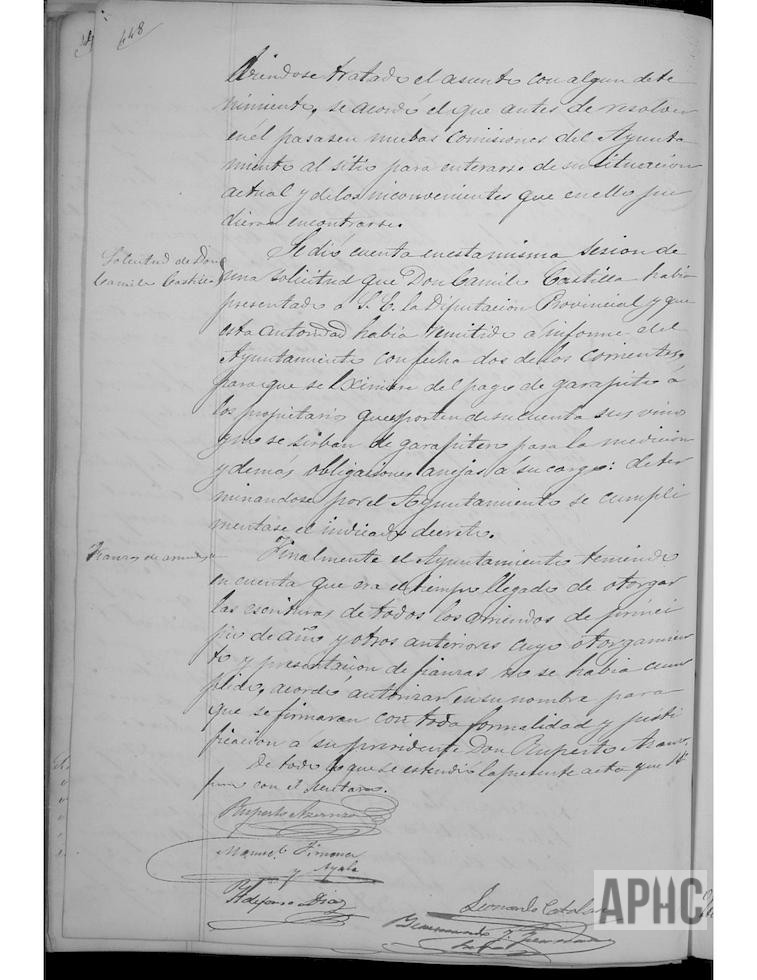 448
biéndose tratado el asunto con algun dete
nimiento, se acordó el que antes de resolver
en él pasasen muebas comisiones del Ayunta
miento al sitio para enterarse de su situacion
actual y de los inconvenientes que en ello pu
dieran encontrarse.
Solicitud de Don
Camilo Castilla
Se dió cuenta en esta misma sesion de
una solicitud que Don Camilo Castilla habia
presentado á S. E. la Diputacion Provincial y que
esta autoridad habia remitido á informe del
Ayuntamiento con fecha dos de los corrientes,
para que se eximiese del pago de garapito á
los propietarios que esporten de su cuenta sus vinos
y no se sirban de garapitero para la medicion
y demás obligaciones anejas á su cargo: deter
minandose por el Ayuntamiento se cumpli
mentase el indicado decreto.
Fianzas de arriendos
Finalmente el Ayuntamiento teniendo
en cuenta que era el tiempo llegado de otorgar
las escrituras de todos los arriendos de princi
pio de año y otros anteriores cuyo otorgamien
to y presentacion de fianzas no se habia cum
plido, acordó autorizar en su nombre para
que se firmaran con toda formalidad y justi
ficacion á su presidente Don Ruperto Azanza.
De todo lo que se estendió la presente acta que fir
man con el Secretario.
Ruperto Azanza
Manuel Jimenez
y Ayala
Ildefonso Diaz
Leonardo Catalan
APHC